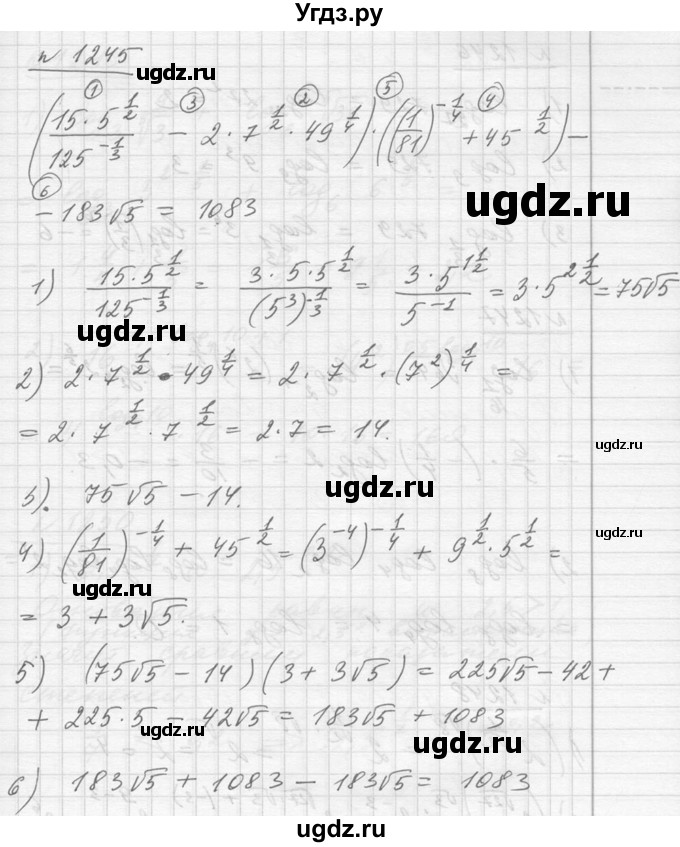 Угдз.ру
n 1245
ugdz.ru
① ③ ② ⑤ ④
(15·5^(1/2) / 125^(-1/3) − 2·7^(1/2)·49^(1/4))·((1/81)^(-1/4) + 45^(1/2)) −
ugdz.ru
⑥
−183√5 = 1083
ugdz.ru
1) 15·5^(1/2) / 125^(-1/3) = 3·5·5^(1/2) / (5^3)^(-1/3) = 3·5^(1 1/2) / 5^(-1) = 3·5^(2 1/2) = 75√5
ugdz.ru
2) 2·7^(1/2)·49^(1/4) = 2·7^(1/2)·(7^2)^(1/4) =
= 2·7^(1/2)·7^(1/2) = 2·7 = 14.
ugdz.ru
3). 75√5 − 14.
ugdz.ru
4) (1/81)^(-1/4) + 45^(1/2) = (3^(-4))^(-1/4) + 9^(1/2)·5^(1/2) =
ugdz.ru
ugdz.ru
= 3 + 3√5.
5) (75√5 − 14)(3 + 3√5) = 225√5 − 42 +
+ 225·5 − 42√5 = 183√5 + 1083
ugdz.ru
ugdz.ru
6) 183√5 + 1083 − 183√5 = 1083
ugdz.ru